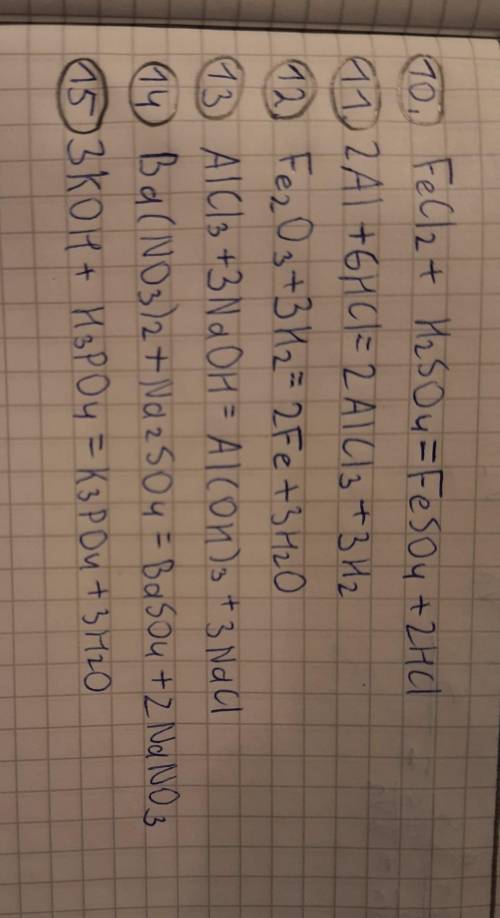 10. FeCl2 + H2SO4 = FeSO4 + 2HCl
11. 2Al + 6HCl = 2AlCl3 + 3H2
12. Fe2O3 + 3H2 = 2Fe + 3H2O
13 AlCl3 + 3NaOH = Al(OH)3 + 3NaCl
14 Ba(NO3)2 + Na2SO4 = BaSO4 + 2NaNO3
15 3KOH + H3PO4 = K3PO4 + 3H2O